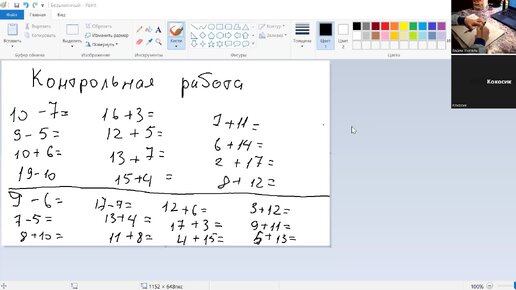 Безымянный - Paint
Файл Главная Вид
Вставить
Выделить
Изменить размер
Повернуть
Кисти
Контур
Заливка
Толщина
Цвет 1
Цвет 2
Изменение цветов
Буфер обмена Изображение Инструменты Фигуры Цвета
Кокосик
Контрольная работа
10 - 7= 16+3= 9+11=
9 - 5= 12 + 5= 6+14=
10+6= 13+7= 2+17=
19-10 15+4 = 8+12=
9 - 6= 12+6= 3+12=
7-5= 13+4= 17+3= 9+11=
8+10= 11+8= 4+15= 5+13=
1152 × 648пкс
100%